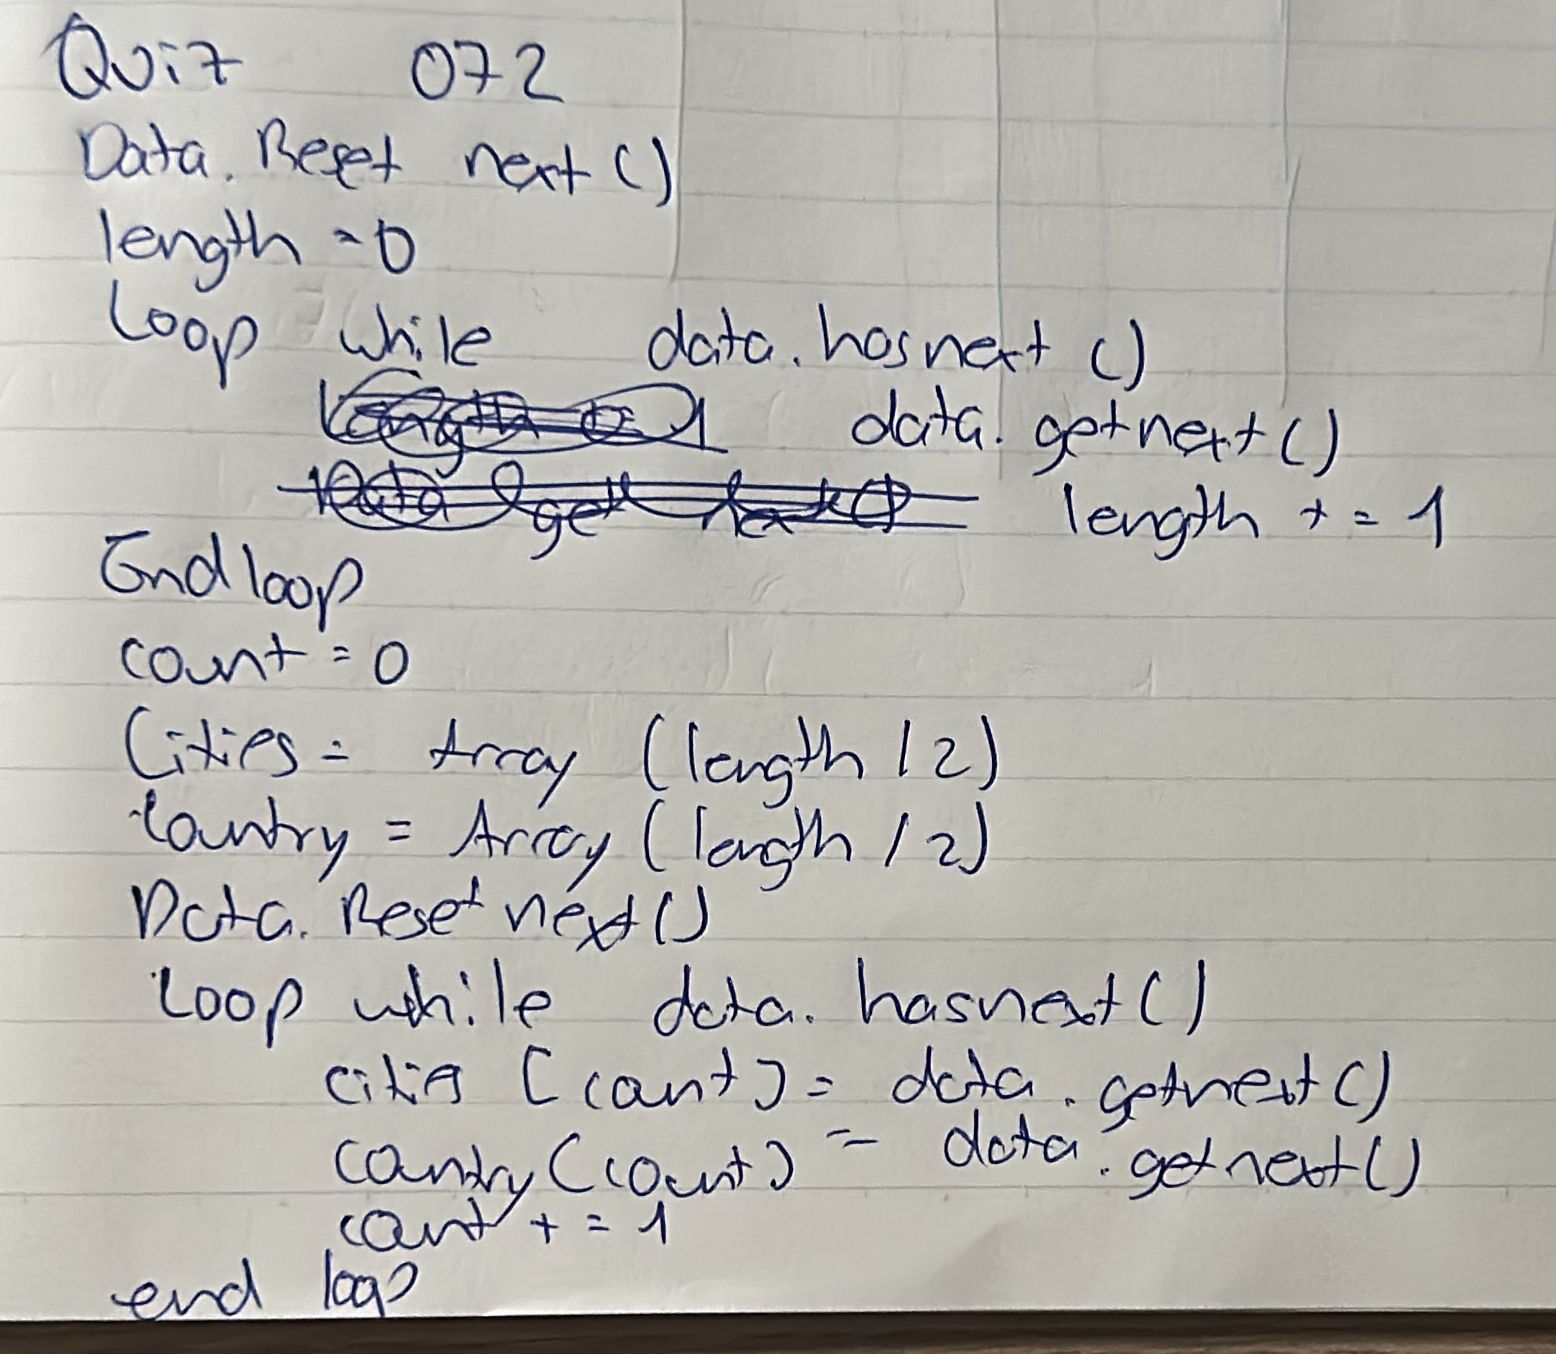 Quiz 072
Data. Reset next ()
length = 0
Loop while data. hasnext ()
data. getnext ()
length += 1
End loop
count = 0
Cities = Array (length / 2)
Country = Array (length / 2)
Data. Reset next ()
Loop while data. hasnext ()
cities [count] = data. getnext ()
country [count] = data. getnext ()
count += 1
end loop